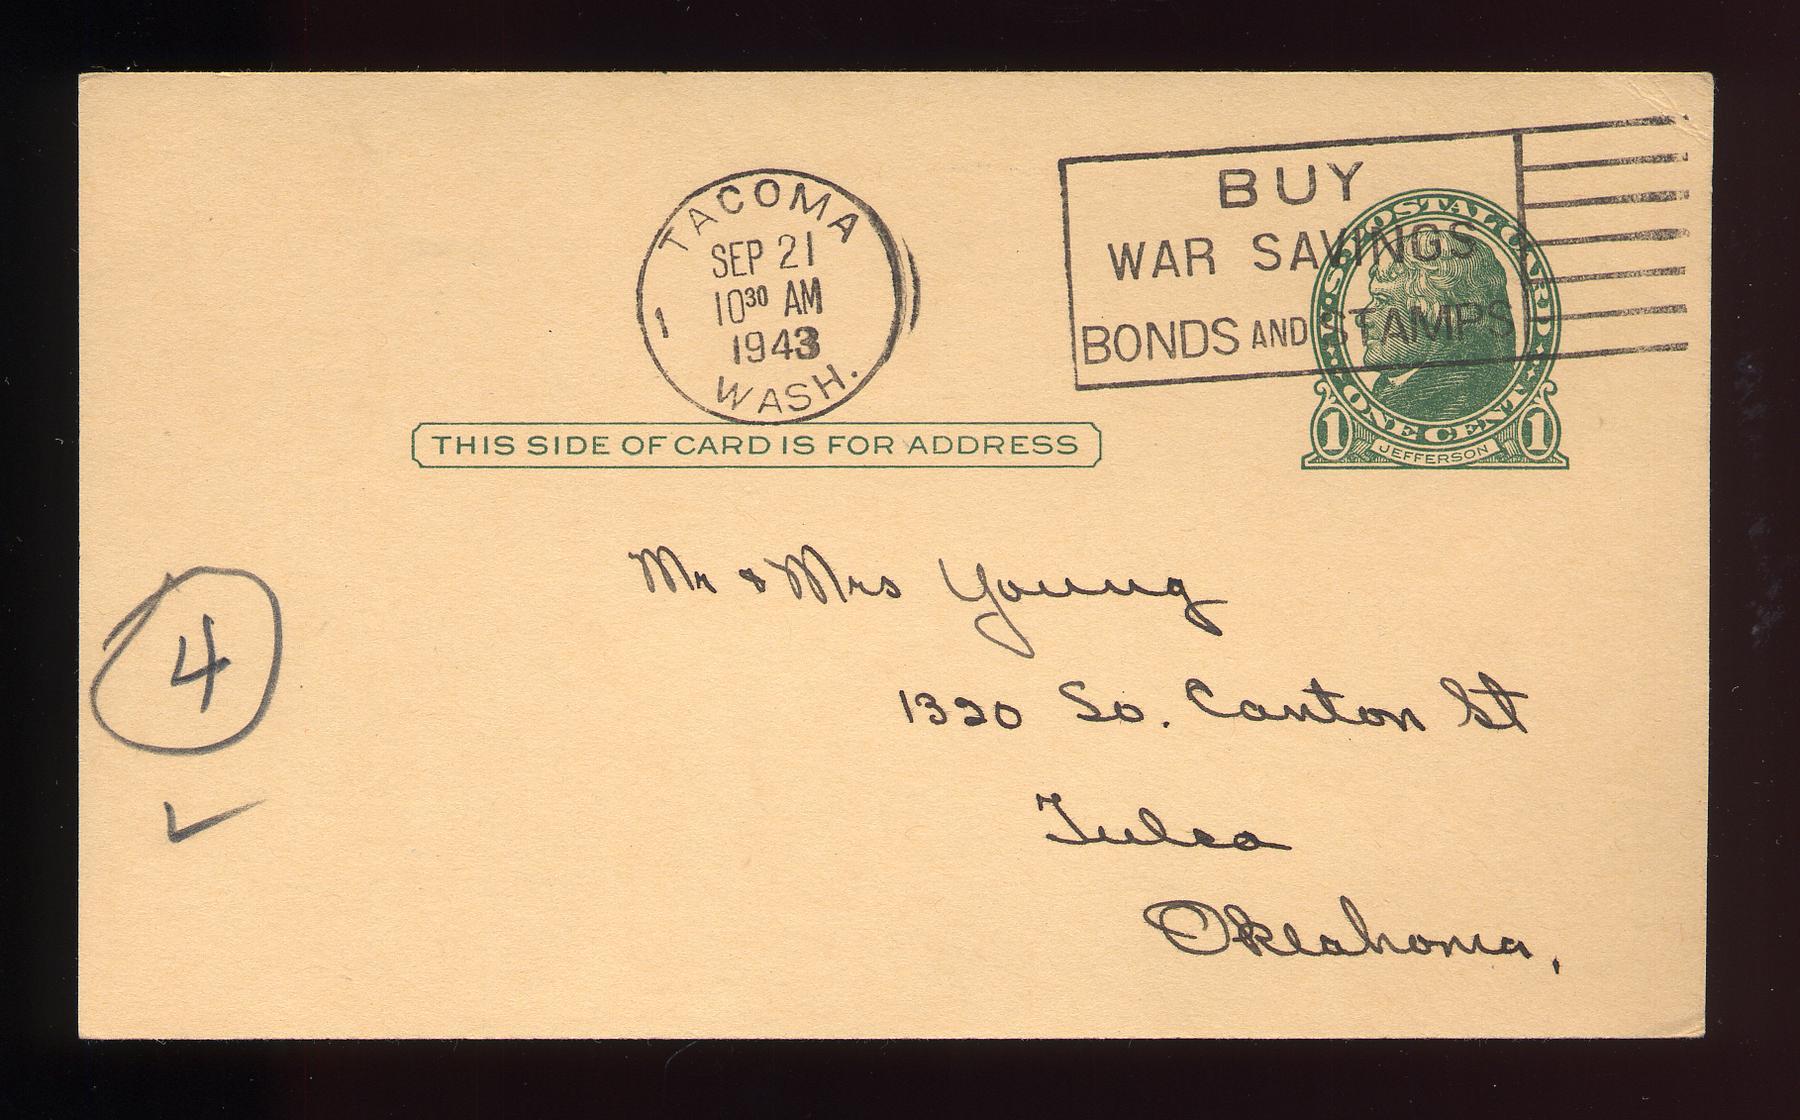 TACOMA
SEP 21
10³⁰ AM
1
1943
WASH.
BUY
WAR SAVINGS
BONDS AND STAMPS
U.S. POSTAL CARD
ONE CENT
1 1
JEFFERSON
THIS SIDE OF CARD IS FOR ADDRESS
Mr & Mrs Young
1320 So. Canton St
Tulsa
Oklahoma.
4